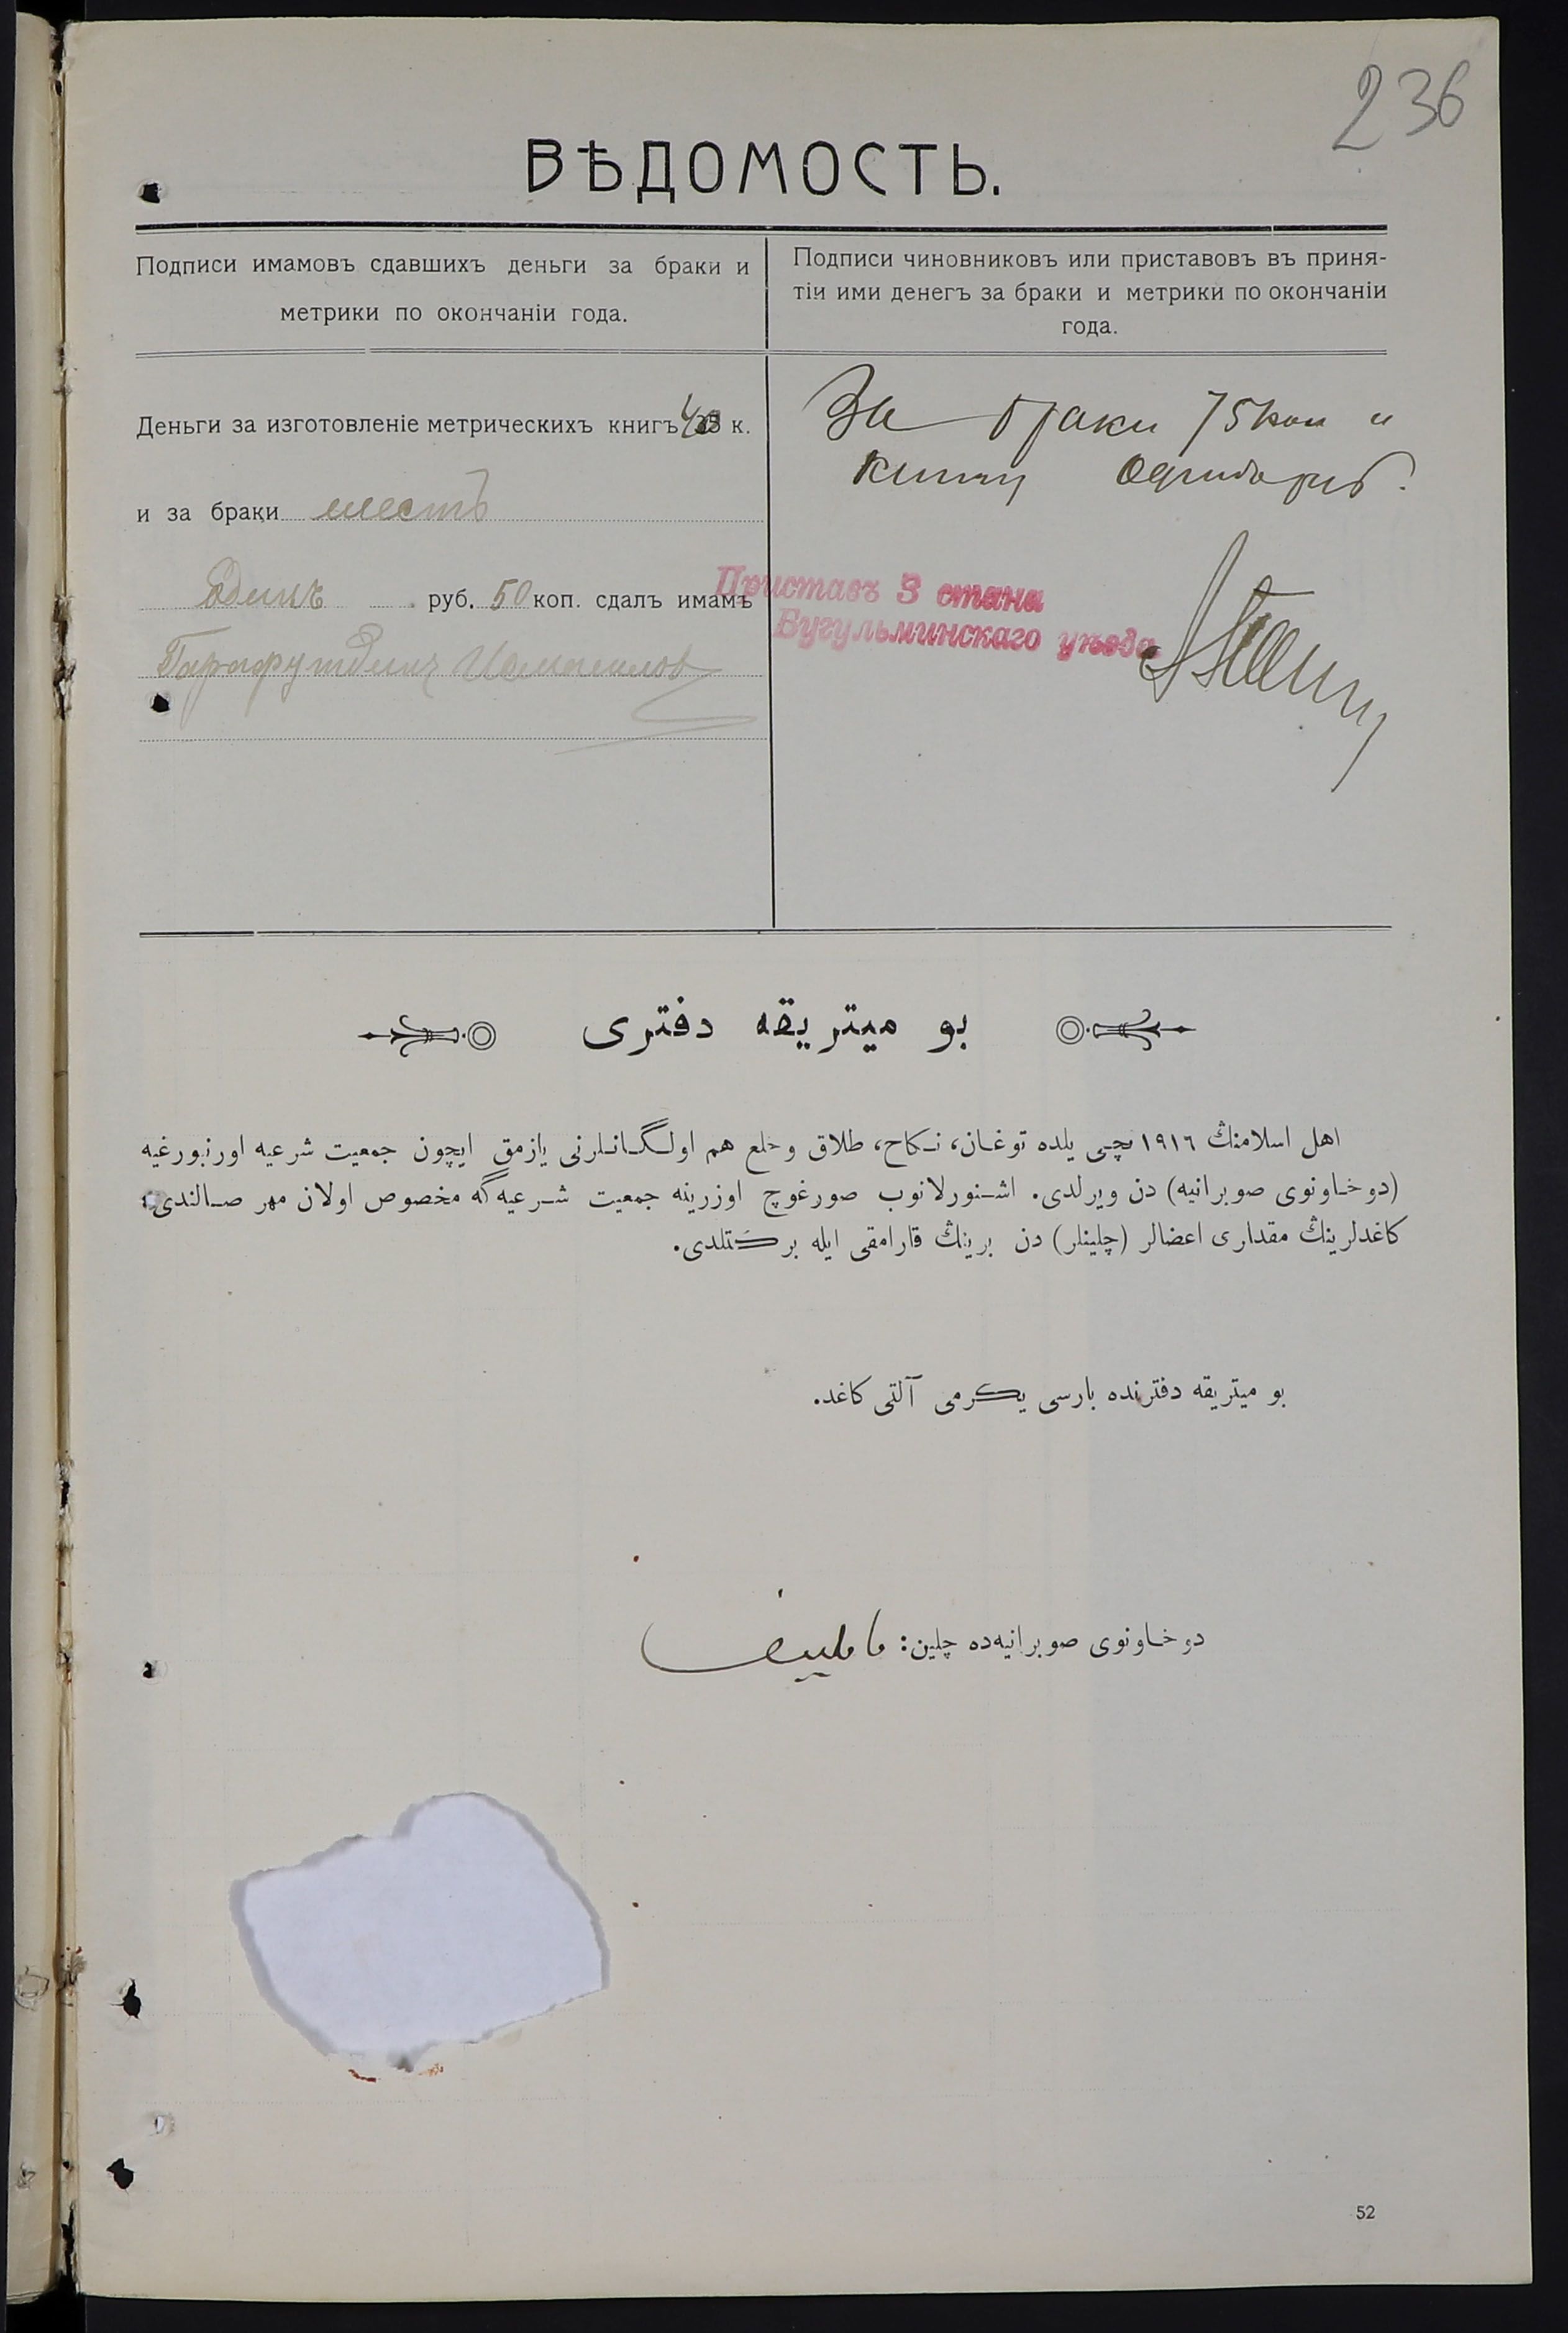 236
ВѢДОМОСТЬ.
Подписи имамовъ сдавшихъ деньги за браки и
метрики по окончаніи года.
Подписи чиновниковъ или приставовъ въ приня-
тіи ими денегъ за браки и метрики по окончаніи
года.
Деньги за изготовленіе метрическихъ книгъ 40 к.
и за браки шесть
Одинъ руб. 50 коп. сдалъ имамъ
Гарафутдинъ Исмагилов
За браки 75 коп и
книгу
Приставъ 3 стана
Бугульминскаго уѣзда
بو ميتريقه دفترى
اهل اسلامنڭ ١٩١٦ نچى يلده توغان، نكاح، طلاق وخلع هم اولگانلرنى يازمق ايچون جمعيت شرعيه اورنبورغيه
(دوخاونوى صوبرانيه) دن ويرلدى. اشنورلانوب صورغوچ اوزرينه جمعيت شرعيه گه مخصوص اولان مهر صالندى؛
كاغدلرينڭ مقدارى اعضالر (چلينلر) دن برينڭ قارامقى ايله بركتلدى.
بو ميتريقه دفترنده بارسى يكرمى آلتى كاغد.
دوخاونوى صوبرانيه‌ده چلين:
52